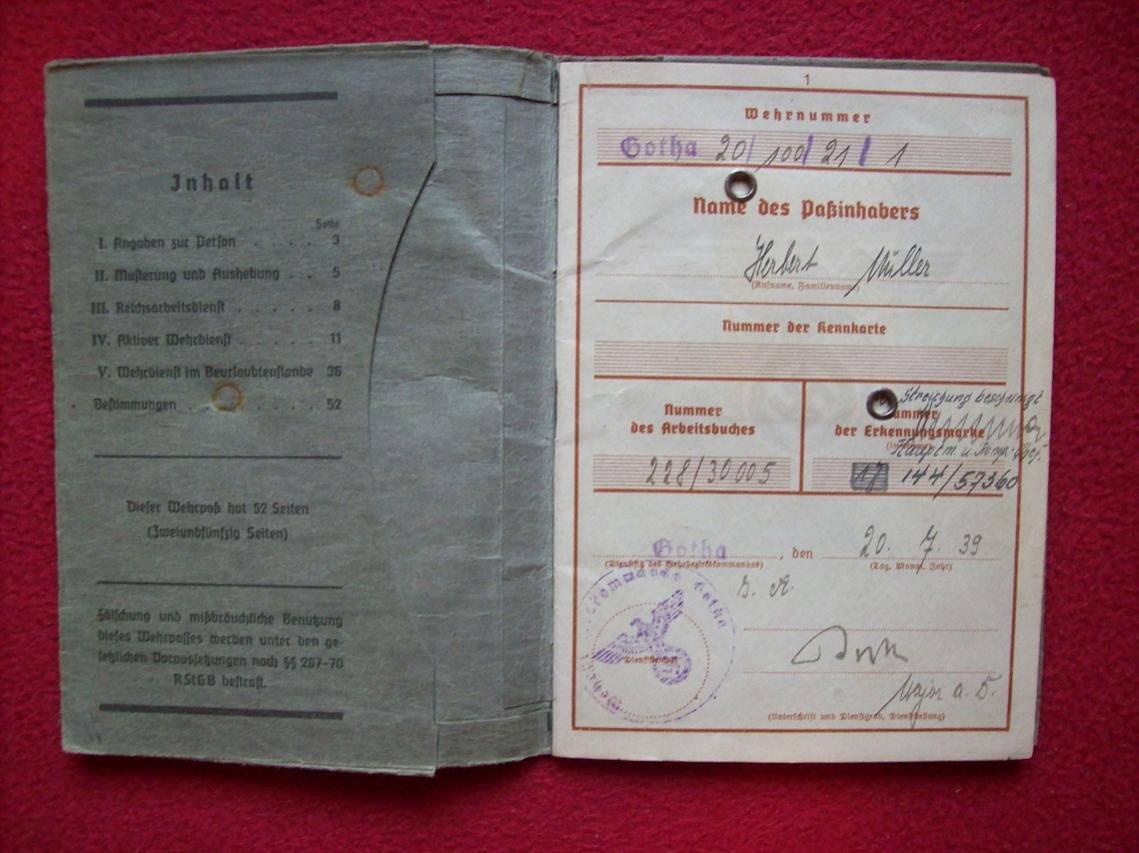 Inhalt
Seite
I. Angaben zur Person . . . . . 3
II. Musterung und Aushebung . . 5
III. Reichsarbeitsdienst . . . . . 8
IV. Aktiver Wehrdienst . . . . . 11
V. Wehrdienst im Beurlaubtenstande 36
Bestimmungen . . . . . . . 52
Dieser Wehrpaß hat 52 Seiten
(Zweiundfünfzig Seiten)
Fälschung und mißbräuchliche Benutzung
dieses Wehrpasses werden unter den ge-
setzlichen Voraussetzungen nach §§ 267–70
RStGB bestraft.
1
Wehrnummer
Gotha 20/100/21/1
Name des Paßinhabers
Herbert Müller
(Rufname, Familienname)
Nummer der Kennkarte
Nummer
des Arbeitsbuches
228/30005
Streichung bescheinigt
Nummer
der Erkennungsmarke
Hauptm. u. Komp.-Chef.
17 144/57360
Gotha, den 20. 7. 39
(Dienstsitz des Wehrbezirkskommandos) (Tag, Monat, Jahr)
kommando Gotha
(Dienststempel)
Major a. D.
(Unterschrift und Dienstgrad, Dienststellung)